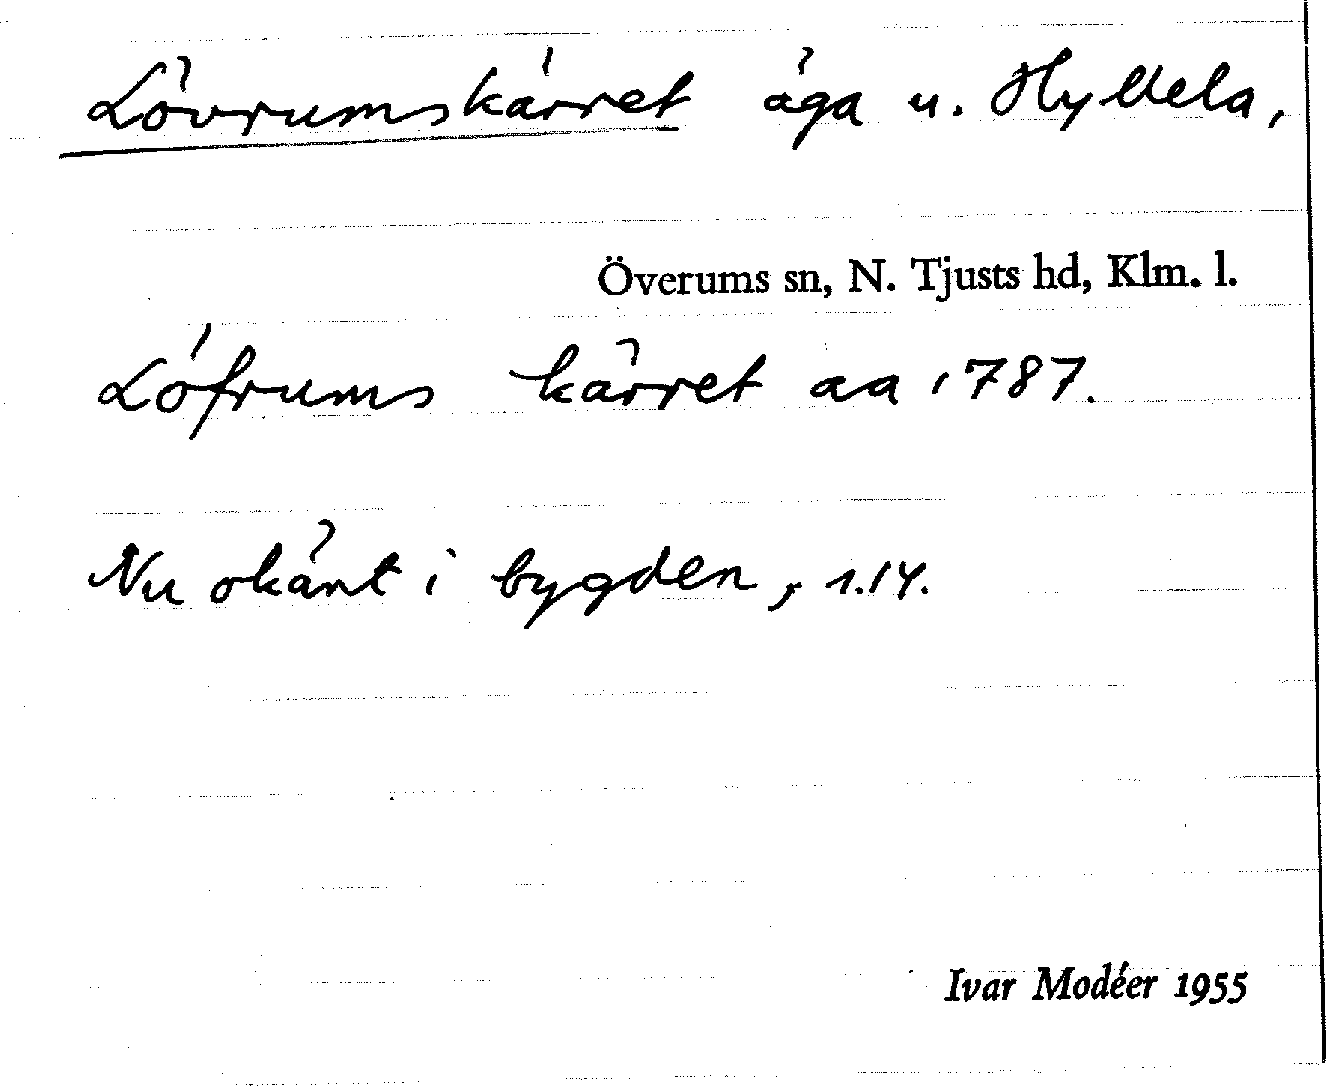 Lövrumskärret äga u. Hyllela,
Överums sn, N. Tjusts hd, Klm. l.
Löfrums kärret aa 1787.
Nu okänt i bygden, 1.14.
Ivar Modéer 1955